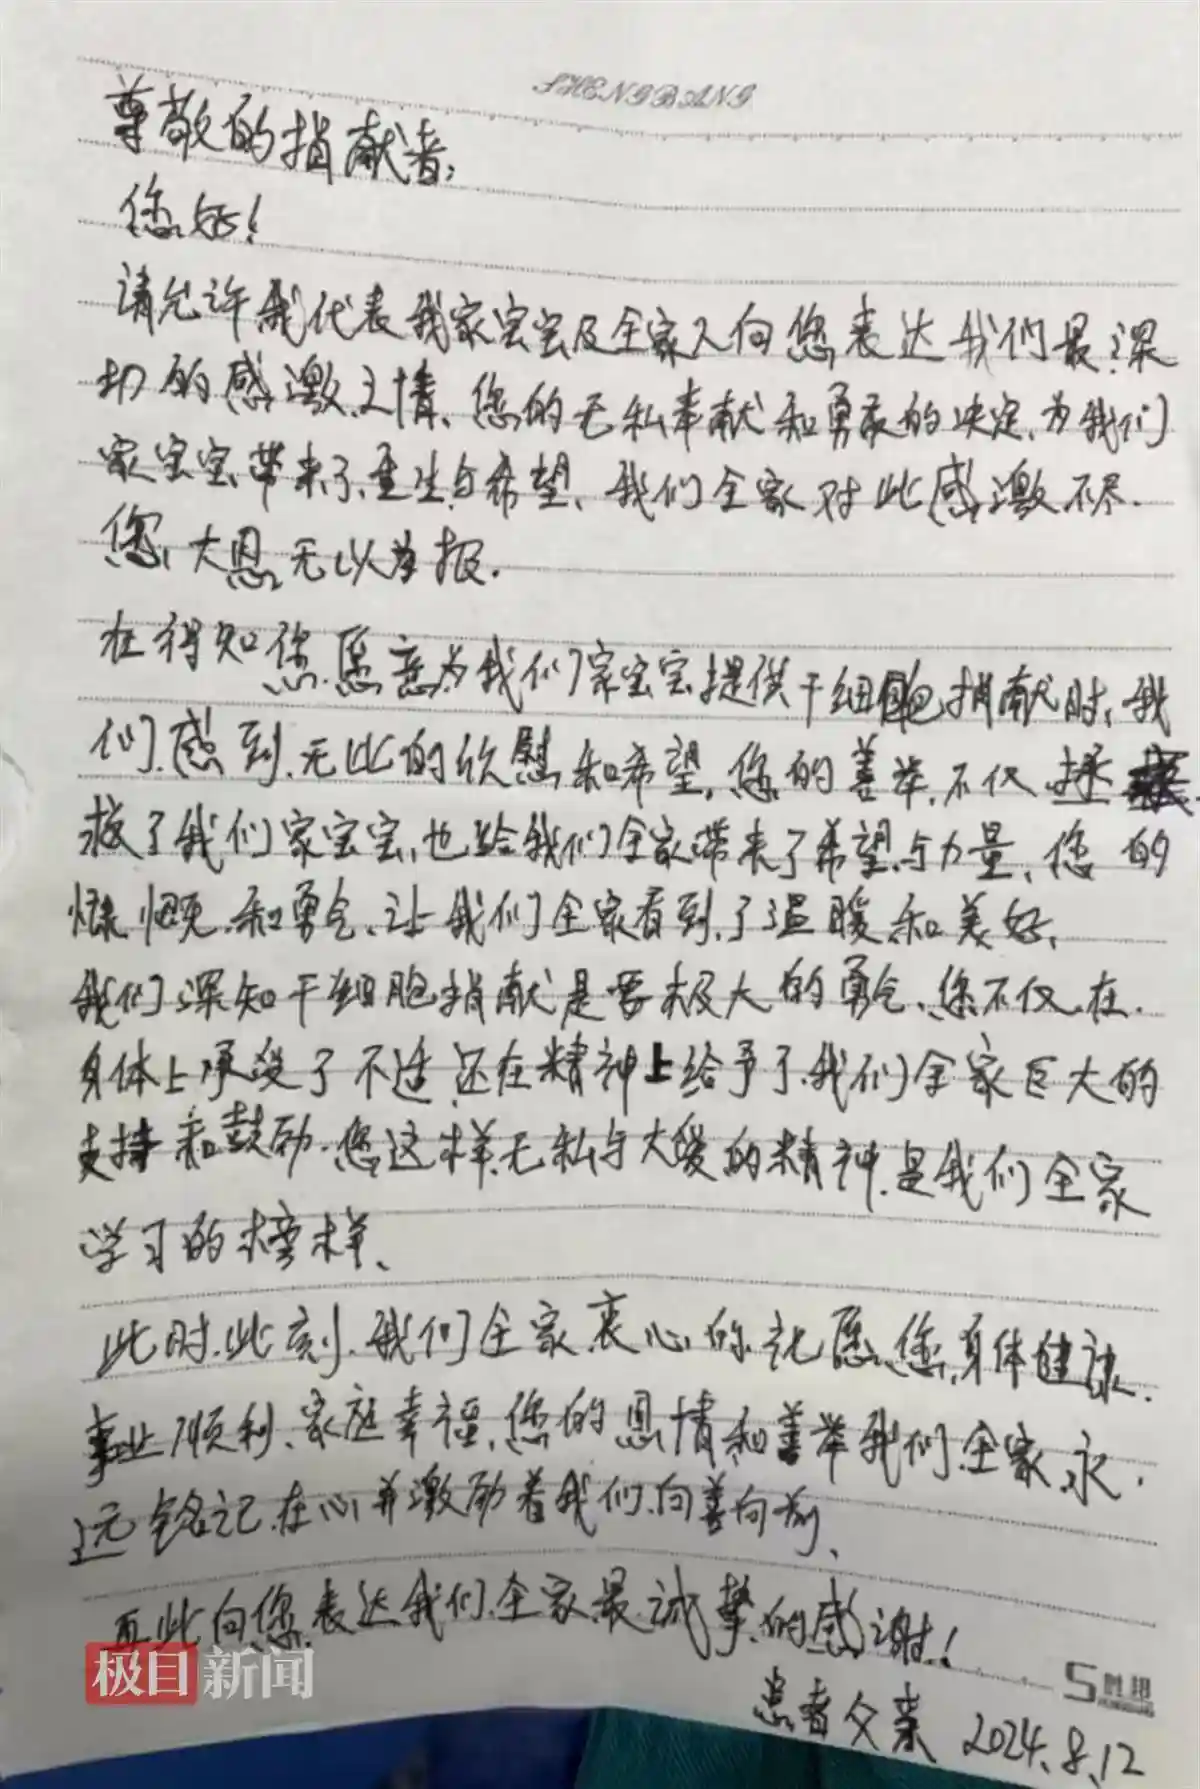 SHENGBANG
尊敬的捐献者:
您好!
请允许我代表我家宝宝及全家人向您表达我们最深
切的感激之情、您的无私奉献和勇敢的决定、为我们
家宝宝带来了重生与希望、我们全家对此感激不尽.
您大恩无以为报.
在得知您愿意为我们家宝宝提供干细胞捐献时、我
们感到无比的欣慰和希望,您的善举,不仅拯
救了我们家宝宝,也给我们全家带来了希望与力量、您的
慷慨和勇气、让我们全家看到了温暖和美好、
我们深知干细胞捐献是要极大的勇气、您不仅在
身体上承受了不适还在精神上给予了我们全家巨大的
支持和鼓励.您这样无私与大爱的精神是我们全家
学习的榜样、
此时此刻、我们全家衷心的祝愿您身体健康.
事业顺利、家庭幸福、您的恩情和善举我们全家永
远铭记在心并激励着我们向善向前、
再此向您表达我们全家最诚挚的感谢!
极目新闻
S胜邦
患者父亲 2024.8.12